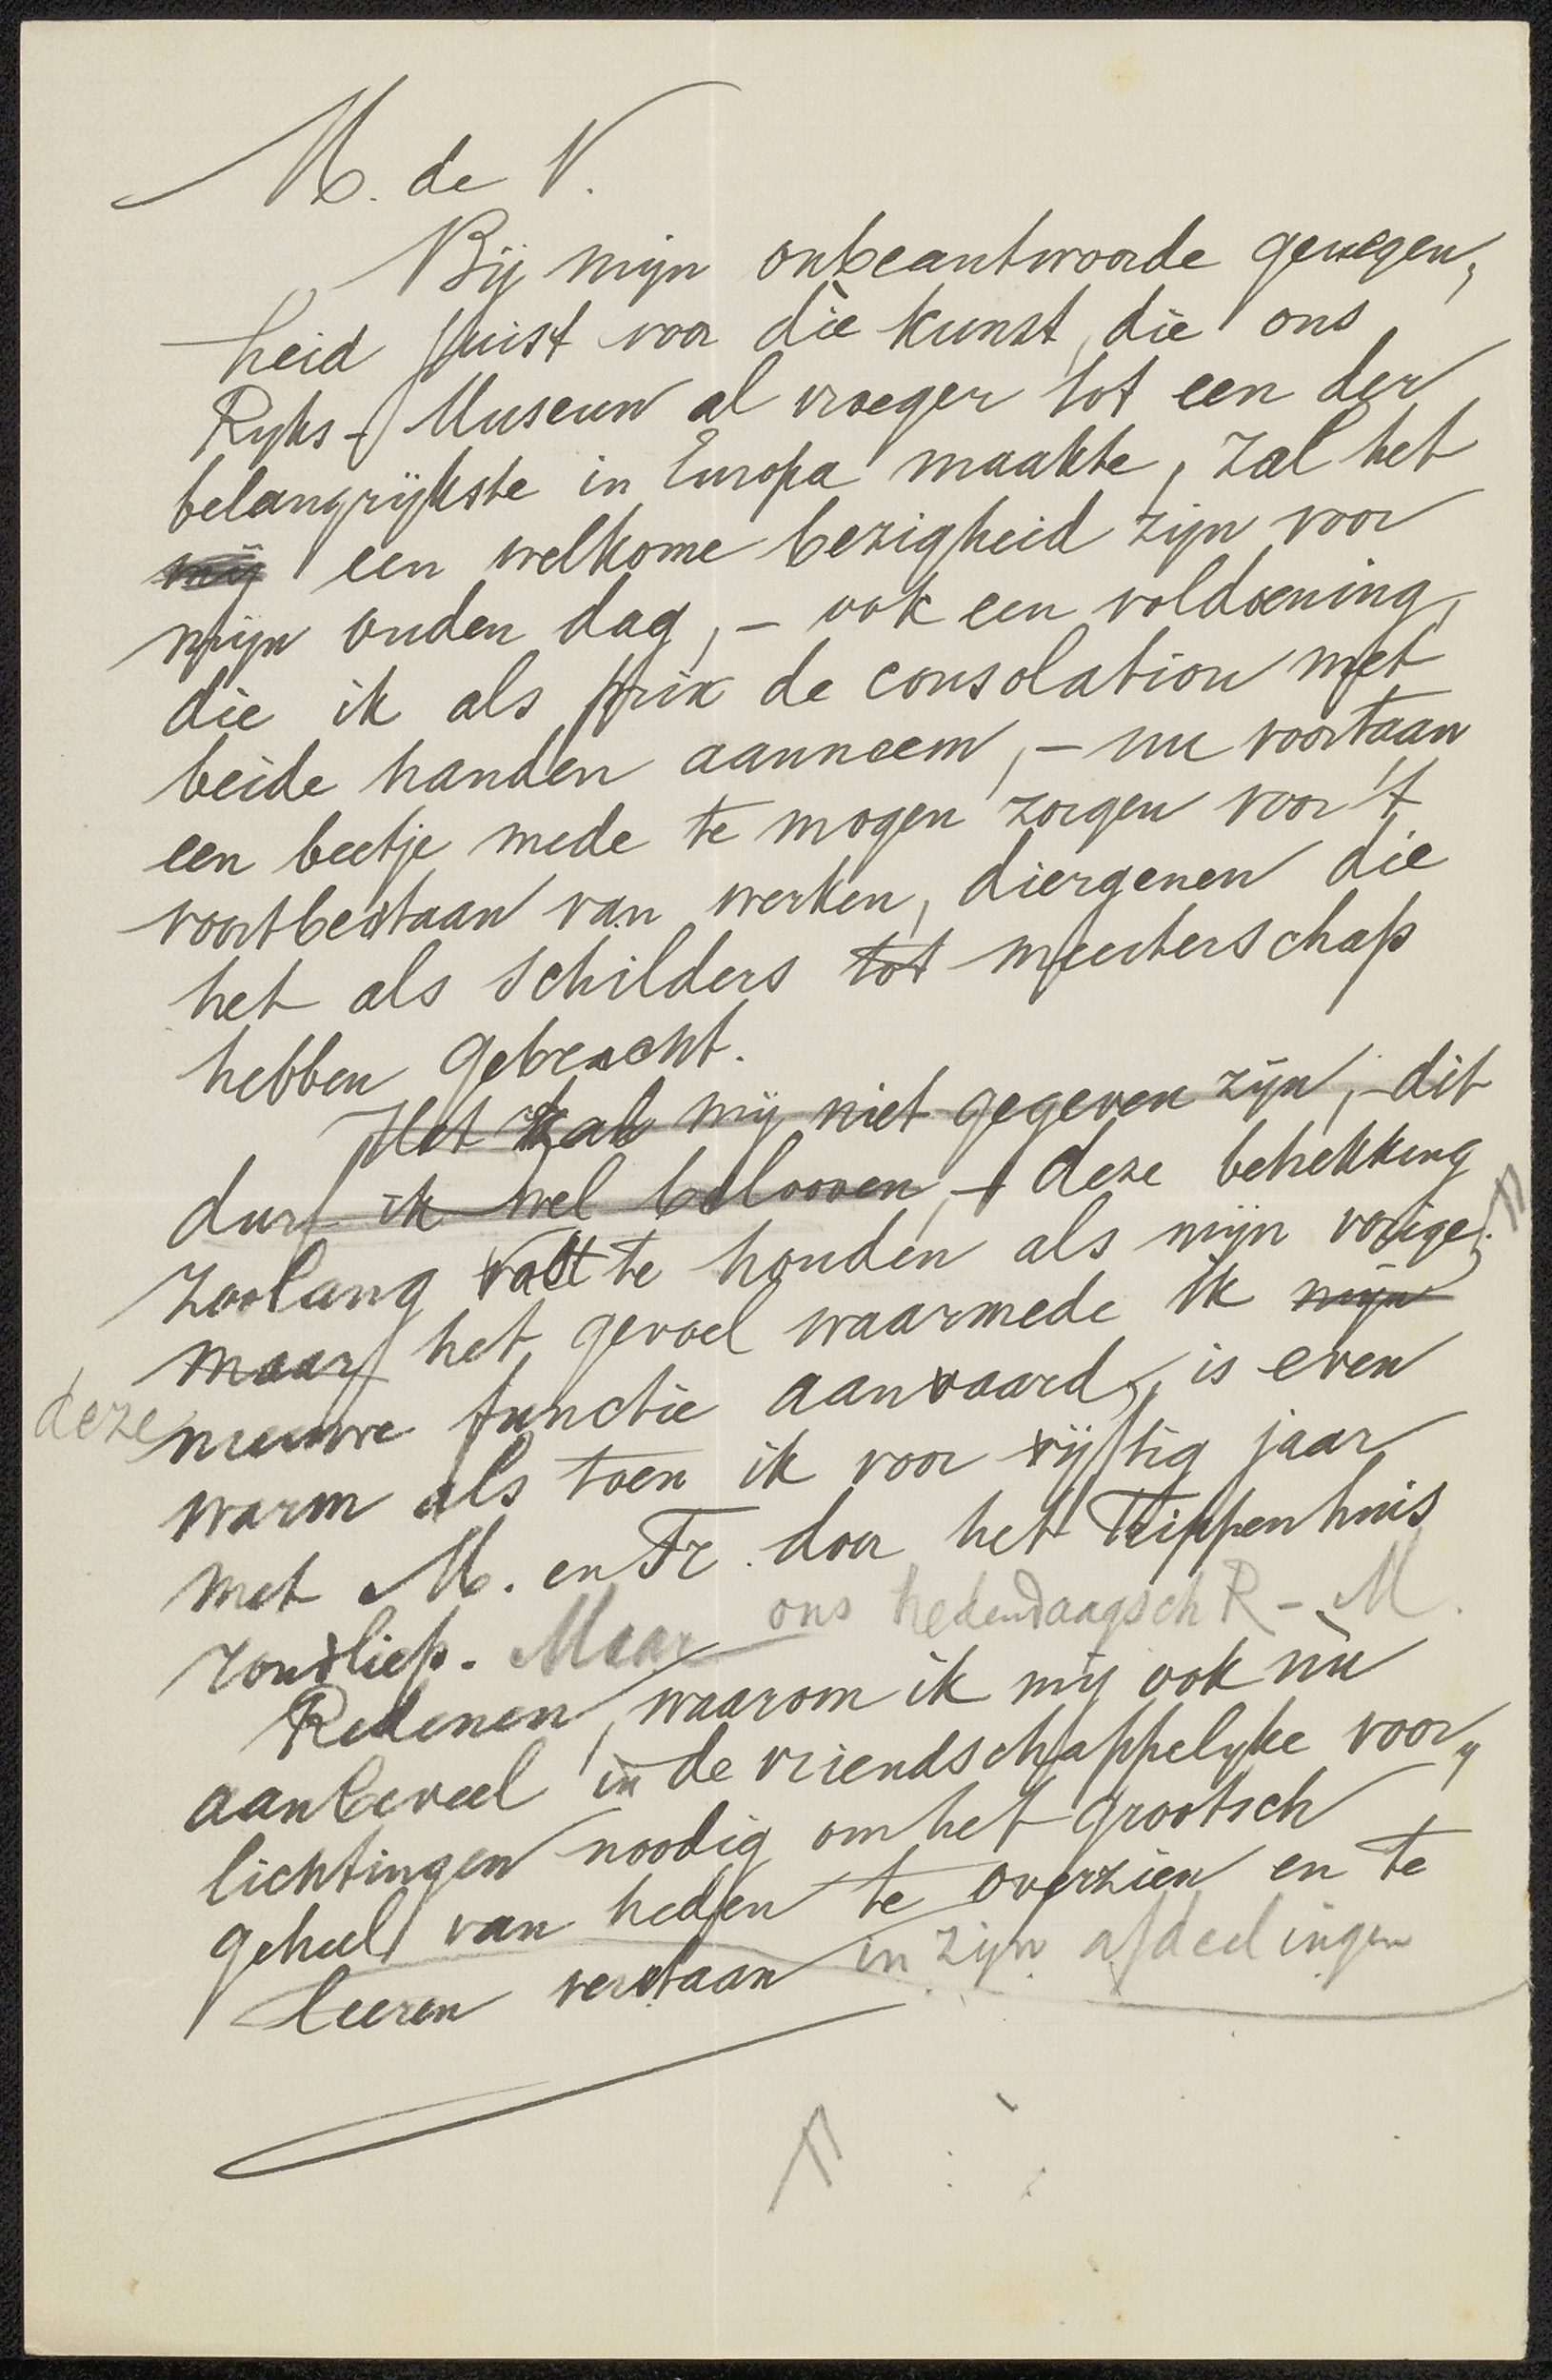 M. de V.
Bij mijn onbeantwoorde genegen,
heid juist voor díe kunst, die ons
Ryks-Museum al vroeger tot een der
belangrijkste in Europa maakte, zal het
mij een welkome bezigheid zijn voor
mijn ouden dag, - ook een voldoening,
die ik als prix de consolation met
beide handen aanneem, - nu voortaan
een beetje mede te mogen zorgen voor 't
voortbestaan van werken, diergenen die
het als schilders tot meesterschap
hebben gebracht.
Het zal mij niet gegeven zijn, - dit
durf ik wel belooven, - deze betrekking
zoolang vast te houden als mijn vorige.
maar het gevoel waarmede ik mijn
deze nieuwe functie aanvaard, is even
warm als toen ik voor vijftig jaar
met M. en Fr. door het Trippenhuis
rondliep. Maar ons hedendaagsch R-M.
Redenen, waarom ik mij ook nù
aanbeveel in de vriendschappelyke voor,
lichtingen noodig om het grootsch
geheel van heden te overzien en te
leeren verstaan in zijn afdeelingen